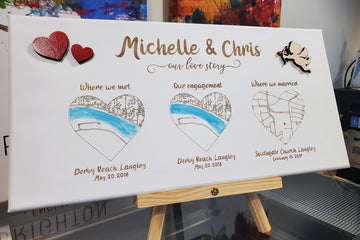 Michelle & Chris
our love story
Where we met
Our engagement
Where we married
Derby Reach Langley
May 20 2016
Derby Reach Langley
May 20 2016
Southgate Church Langley